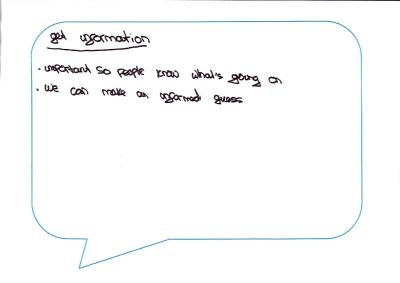 get information
• important so people know what's going on
• we can make an informed guess